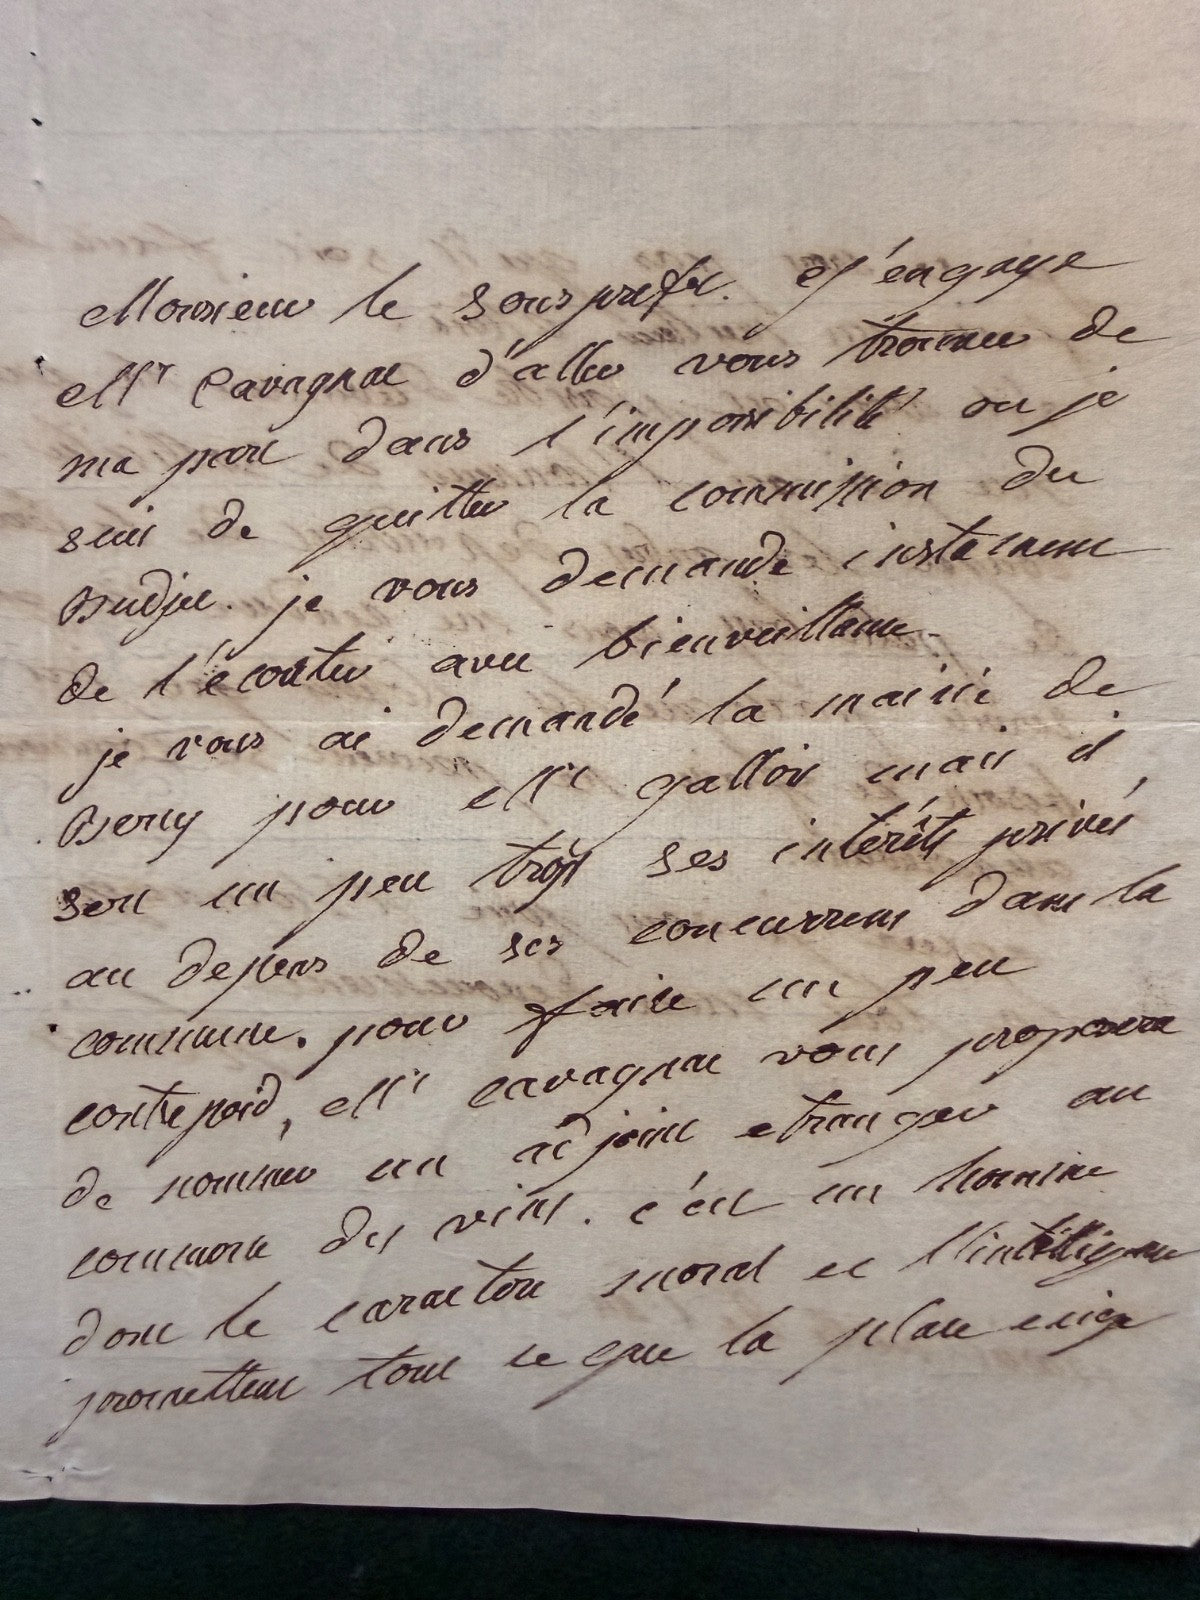 Monsieur le sous prefet. j'engage
Mr Cavagnac d'aller vous trouver de
ma part dans l'impossibilité ou je
suis de quitter la commission du
Budjet. je vous demande instament
de l'écouter avec bienveillance.
je vous ai demandé la mairie de
Bercy pour Mr gallois mais il
sert un peu trop ses intérêts privés
au depens de ses concurrens dans la
commune. pour faire un peu
contrepoid, Mr cavagnac vous proposera
de nommer un adjoint etranger au
commerce des vins. c'est un homme
dont le caractère moral et l'intelligence
promettent tout ce que la place exige